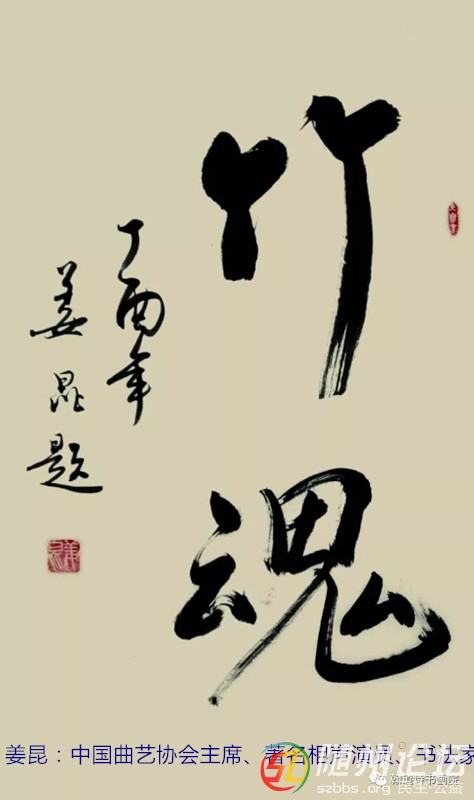 竹魂
丁酉年
姜昆题
姜昆：中国曲艺协会主席、著名相声演员、书法家
随州论坛
szbbs.org 民主·公益